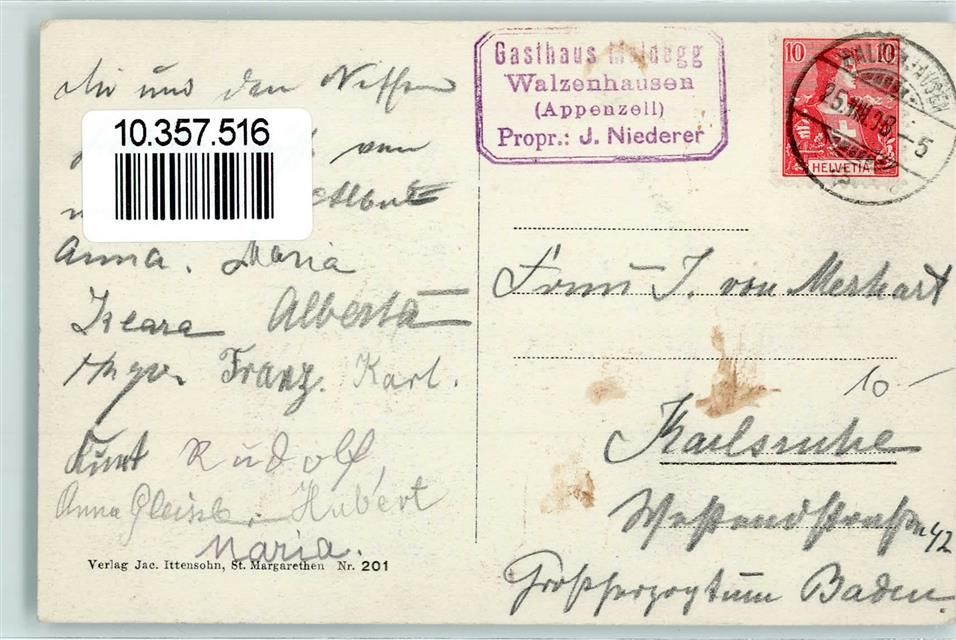 und den
10.357.516
Anna. Maria
Klara Alberta
Franz. Karl.
Kurt Rudolf,
Anna Hubert
Maria.
Verlag Jac. Ittensohn, St. Margarethen Nr. 201
Gasthaus Meldegg
Walzenhausen
(Appenzell)
Propr.: J. Niederer
10 10
HELVETIA
WALZENHAUSEN
25.VIII.08-5
Frau J. von Merhart
10-
Karlsruhe
Westendstraße 42
Großherzogtum Baden.